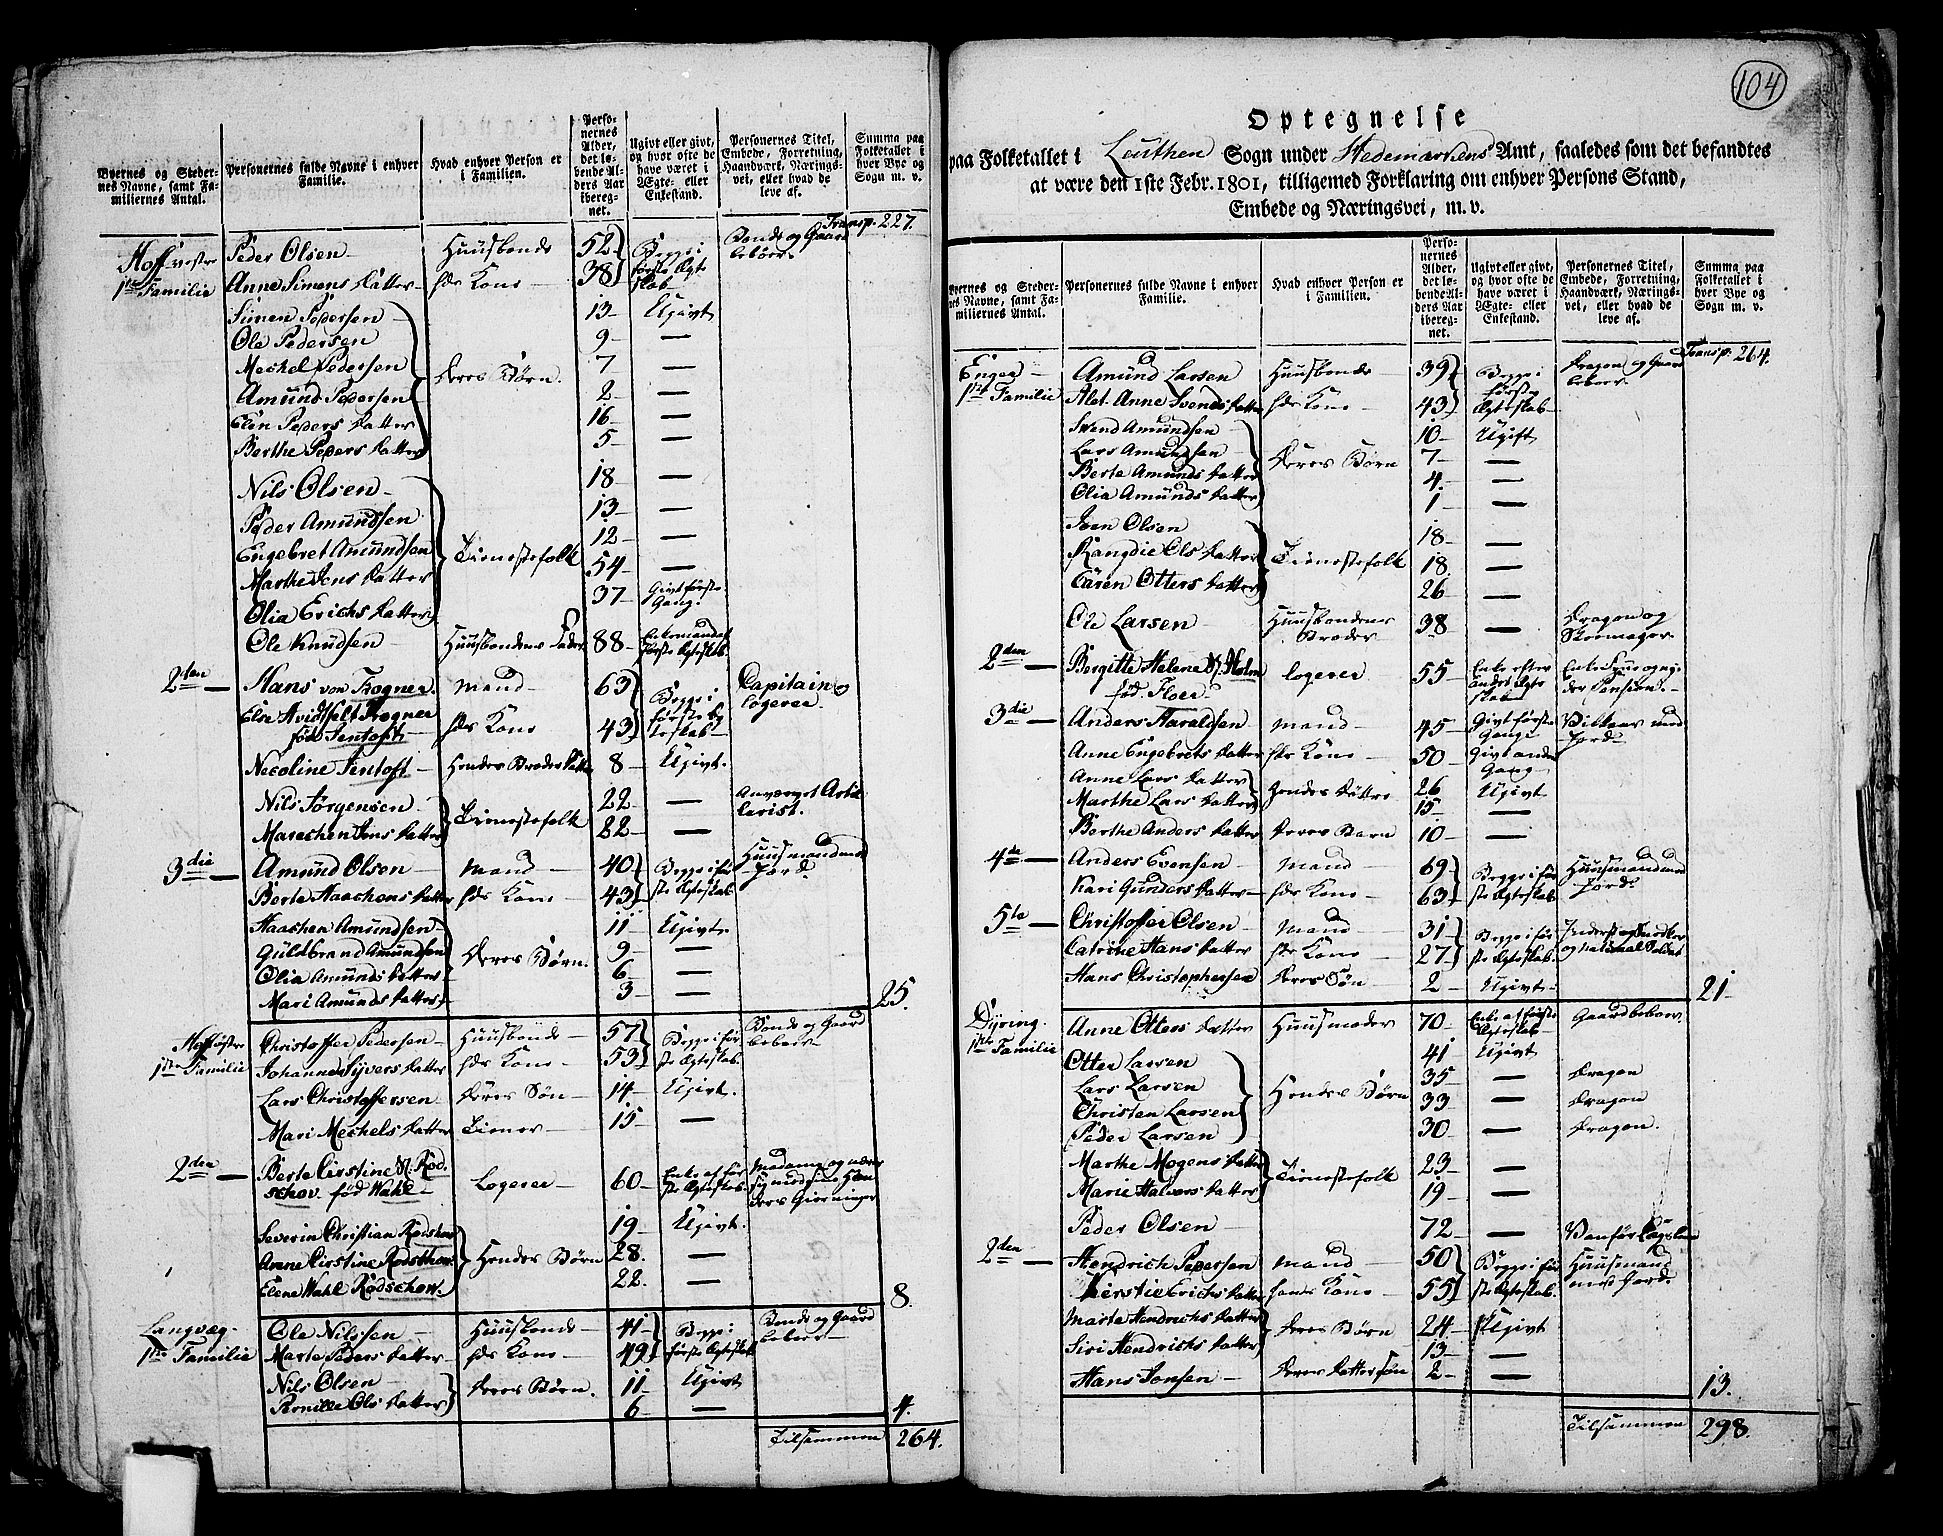 Byernes og Steder-
nes Navne, samt Fa-
miliernes Antal.
Personernes fulde Navne i enhver
Familie.
Hvad enhver Person er
i Familien.
Perso-
nernes
Alder,
det le-
bende Al-
ders Aar
iberegnet.
Ugivt eller givt,
og hvor ofte de
have været i
Ægte- eller
Enkestand.
Personernes Titel,
Embede, Forretning,
Haandværk, Nærings-
vei, eller hvad de
leve af.
Summa paa
Folketallet i
hver Bye og
Sogn m. v.
Transp. 227.
Hoff vestre 1ste Familie
Peder Olsen Huusbonde 52 Begge i første Ægteskab Bonde og Gaard beboer
Anne Simens Datter hds Kone 38
Simen Pedersen 13 Ugivt
Ole Pedersen 9 —
Mechel Pedersen Deres Børn. 7 —
Amund Pedersen 2 —
Elen Peders Datter 16 —
Berthe Peders Datter 5 —
Nils Olsen 18 —
Peder Amundsen 13 —
Engebret Amundsen Tienestefolk 12 —
Marthe Jens Datter 54 —
Olia Erichs Datter 37 Givt første Gang.
Ole Knudsen Huusbondens Fader 88 Enkemand af første Ægteskab
2den — Hans von Trogner Mand 63 Begge i første Ægteskab Capitain og logerer.
Else Hvidtfelt Trogner
født Tentoft hds Kone 43
Necoline Tentoft Hendes Broder Datter 8 Ugivt.
Nils Jørgensen Tienestefolk 22 — Anverget Artillerist.
Marechen Jens Datter 22 —
3die — Amund Olsen Mand 40 Begge i første Ægteskab Huusmand med Jord.
Berte Haachens Datter hds Kone 43
Haachen Amundsen 11 Ugivt
Guldbrand Amundsen Deres Børn. 9 —
Olia Amunds Datter 6 —
Mari Amunds Datter 3 — 25.
Hoff østre 1ste Familie
Christoffer Pedersen Huusbonde 57 Begge i første Ægteskab Bonde og Gaard beboer
Johanne Sivers Datter hds Kone 53
Lars Christoffersen Deres Søn 14 Ugivt.
Mari Mechels Datter Tiener 15 —
2den — Berte Cirstine Sl. Rodschov født Wahl Logerer 60 Enke af første Ægteskab Madame og nærer sig med sine Hænders Gierninger
Severin Christian Rodschov 19 Ugivt.
Anne Cirstine Rodschov Hendes Børn 28. —
Elene Wahl Rodschow. 22. — 8.
Langvæg 1ste Familie
Ole Nilssen Huusbonde 41 Begge i første Ægteskab Bonde og Gaard beboer
Marte Peders Datter hds Kone 49
Nils Olsen Deres Børn. 11 Ugivt
Pernille Ols Datter 6 — 4.
Tilsammen 264.
104
Optegnelse
paa Folketallet i Leuthen Sogn under Hedemarkens Amt, saaledes som det befandtes
at være den 1ste Febr. 1801, tilligemed Forklaring om enhver Persons Stand,
Embede og Næringsvei, m. v.
Byernes og Steder-
nes Navne, samt Fa-
miliernes Antal.
Personernes fulde Navne i enhver
Familie.
Hvad enhver Person er
i Familien.
Perso-
nernes
Alder,
det le-
bende Al-
ders Aar
iberegnet.
Ugivt eller givt,
og hvor ofte de
have været i
Ægte- eller
Enkestand.
Personernes Titel,
Embede, Forretning,
Haandværk, Nærings-
vei, eller hvad de
leve af.
Summa paa
Folketallet i
hver Bye og
Sogn m. v.
Transp. 264.
Enger 1ste Familie
Amund Larsen Huusbonde 39 Begge i første Ægteskab Dragon og Gaard beboer
Alet Anne Svends Datter hds Kone 43
Svend Amundsen 10 Ugift
Lars Amundsen Deres Børn 7 —
Berte Amunds Datter 4 —
Olia Amunds Datter 1 —
Iven Olsen 18 —
Rangdie Ols Datter Tienestefolk 18 —
Caren Otters Datter 26 —
Ole Larsen Huusbondens Broder 38 — Dragon og Skoemager
2den — Bergitte Helene Sl. Holm
fød. Floer logerer 55 Enke efter andet Ægteskab Enke Pension.
3die — Anders Haraldsen Mand 45 Givt første Gang med Jord
Anne Engebrets Datter hds Kone 50 Givt anden Gang
Anne Lars Datter Hendes Døttre 26 Ugivt
Marthe Lars Datter 15 —
Berthe Anders Datter Deres Barn 10 —
4de — Anders Evensen Mand 69 Begge i første Ægteskab Huusmand med Jord
Kari Gunders Datter hds Kone 63
5te — Christoffer Olsen Mand 31 Begge i første Ægteskab. Inderst og Snedker og national Soldat
Catrine Hans Datter hds Kone 27
Hans Christophersen Deres Søn 2 Ugivt 21
Dyring 1ste Familie
Anne Otters Datter Huusmoder 70 Enke af første Ægteskab Gaardbeboer
Otter Larsen 41 Ugivt
Lars Larsen Hendes Børn 35 — Dragon
Christen Larsen 33 — Dragon
Peder Larsen 30 — Dragon.
Marthe Mogens Datter Tienestefolk 23 —
Marie Halvors Datter 19 —
Peder Olsen 72 — Vanfør
2den — Hendrich Pedersen Mand 50 Begge i første Ægteskab. Huusmand med Jord.
Kierstie Erichs Datter hans Kone 55
Marte Hendrichs Datter Deres Børn 24 Ugivt
Siri Hendrichs Datter 13 —
Hans Jonsen Deres Datter søn 2 — 13.
Tilsammen 298.